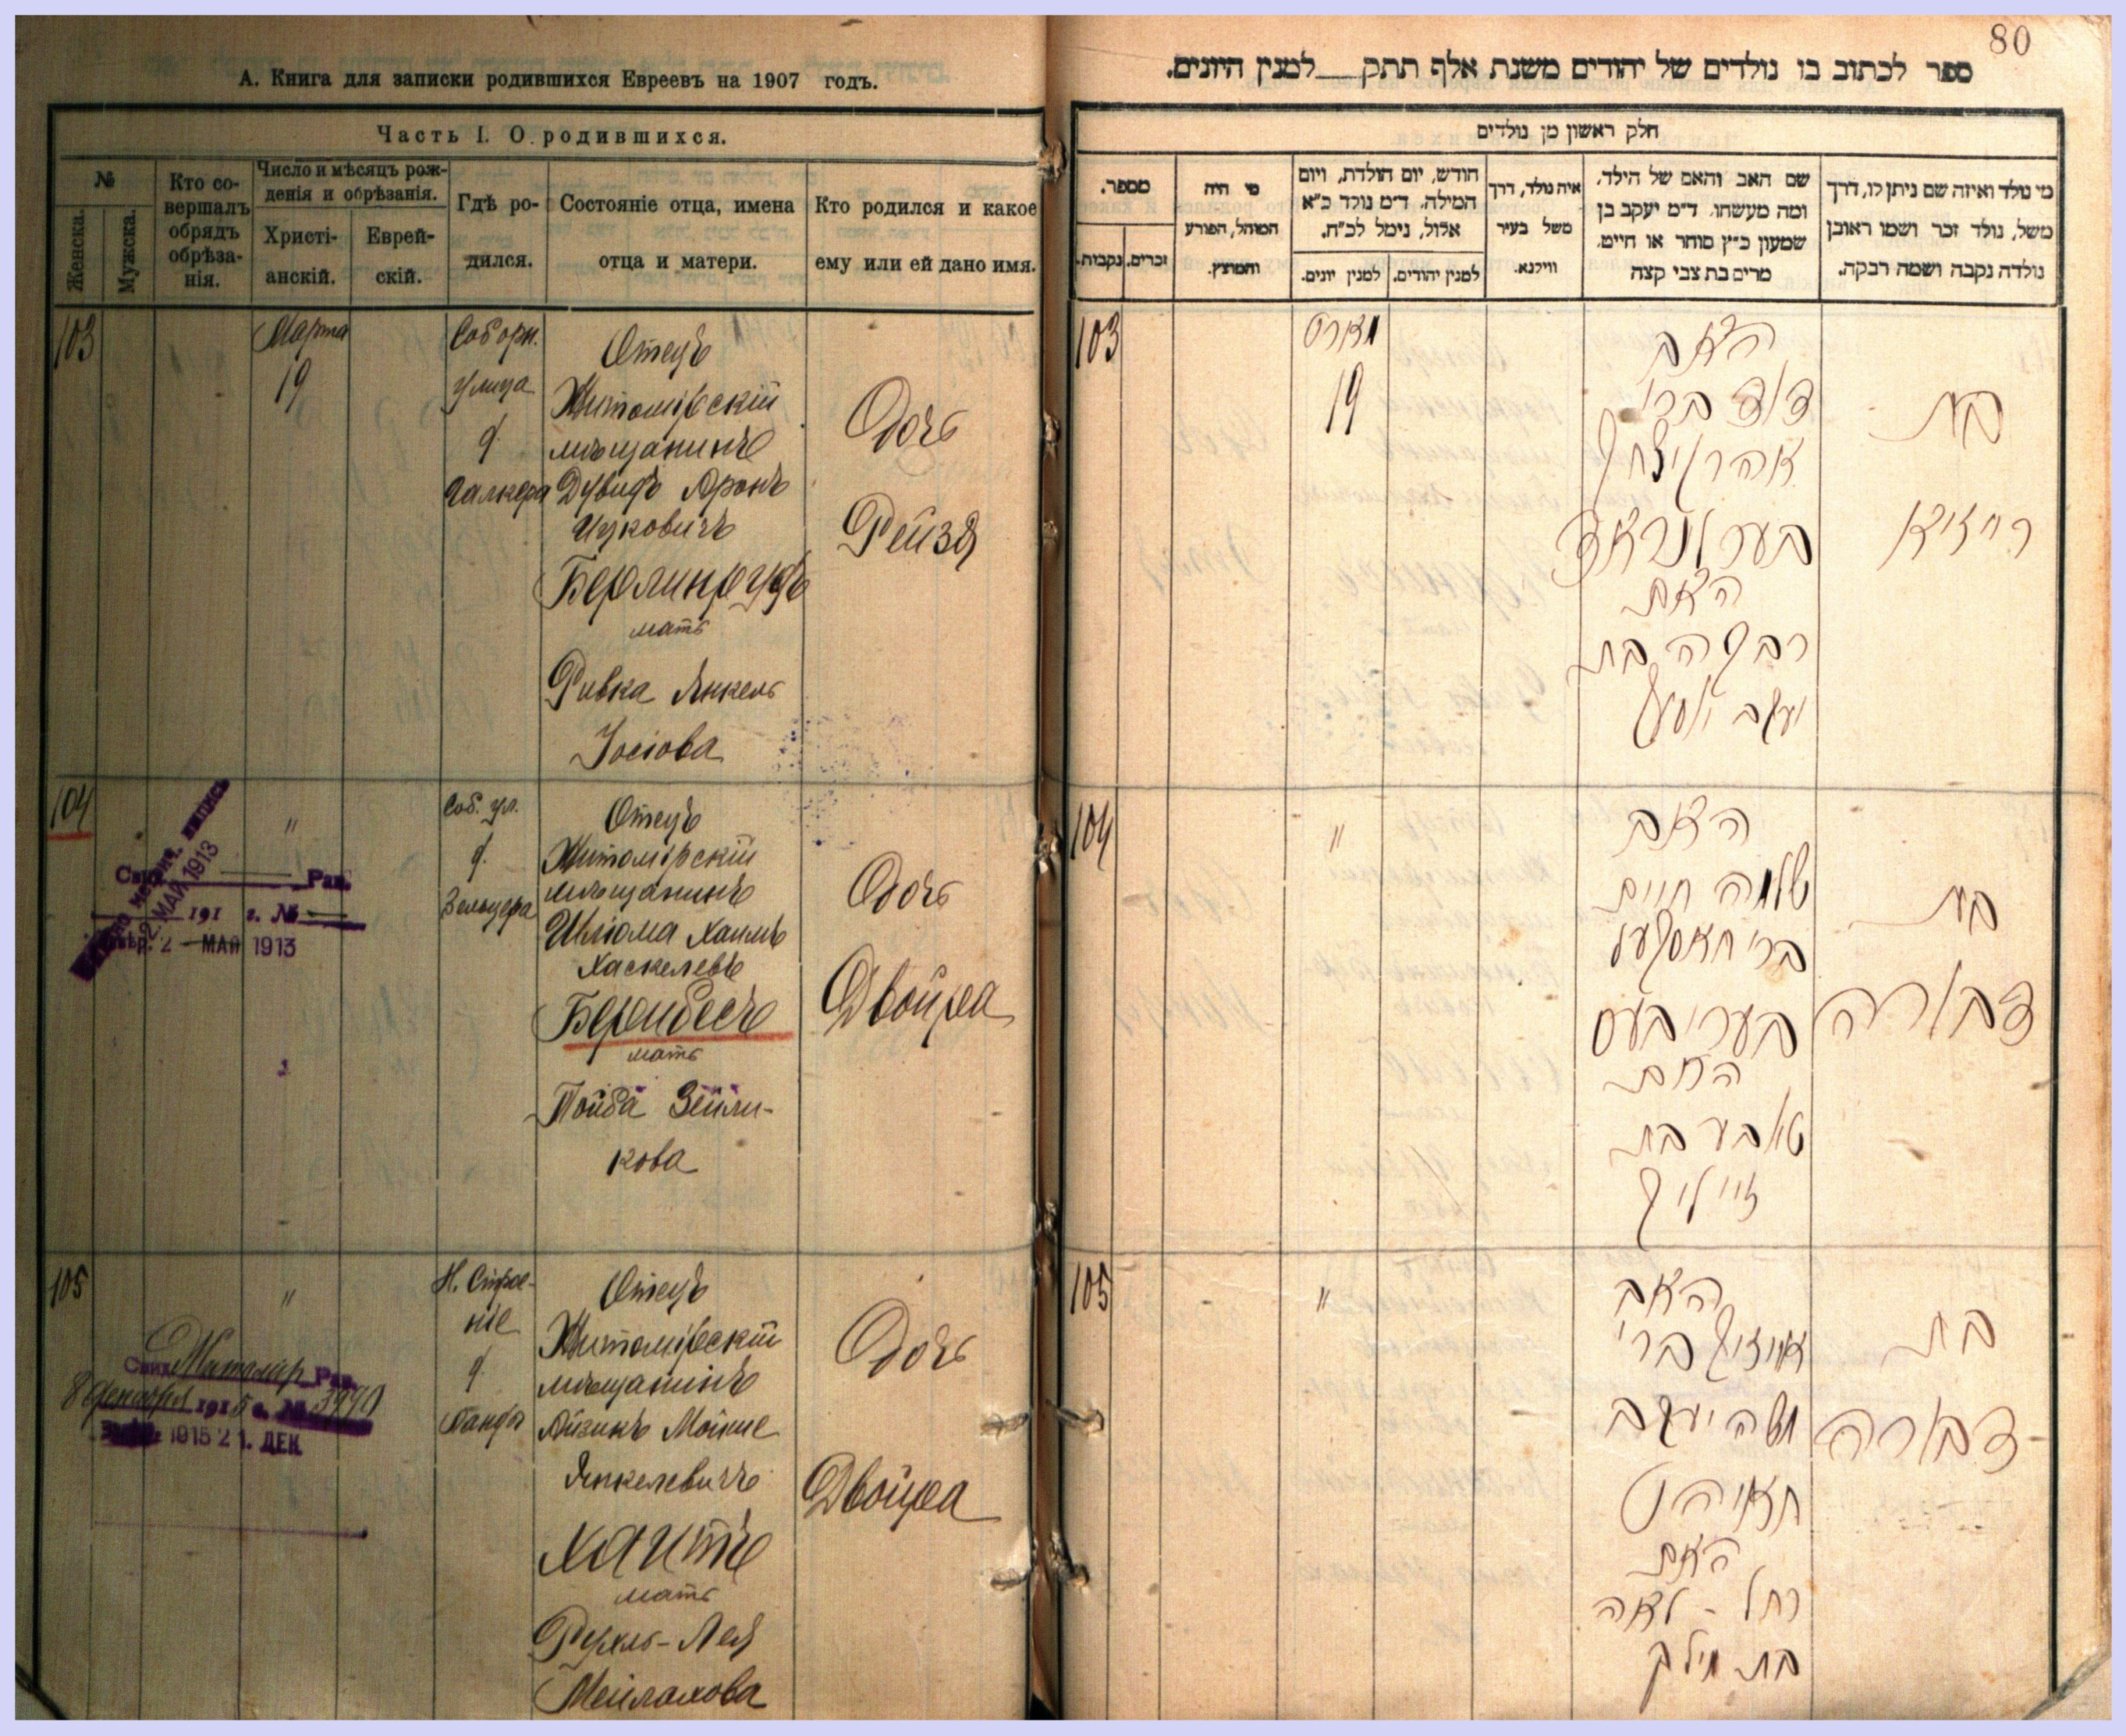 А. Книга для записки родившихся Евреевъ на 1907 годъ.
Часть I. О родившихся.
№
Женска.
Мужска.
Кто совершалъ обрядъ обрѣзанія.
Число и мѣсяцъ рожденія и обрѣзанія.
Христіанскій.
Еврейскій.
Гдѣ родился.
Состояніе отца, имена отца и матери.
Кто родился и какое ему или ей дано имя.
103
Марта
19
Соборн.
улица
д.
Отецъ
Житомірскій
мѣщанинъ
Дувидъ Аронъ
Ицковичъ
мать
Ривка Янкель
Іосіова
Дочь
Рейзя
104
"
Соб. ул.
д.
Зельцера
Отецъ
Житомірскій
мѣщанинъ
Шлiома Хаимъ
Хаскелевъ
Берибесъ
мать
Тойба Зейли-
кова
Дочь
Двойра
Рав.
191 г. №
2 МАЙ 1913
2. МАЙ 1913
105
"
Н. Строе-
ніе
д.
Отецъ
Житомірскій
мѣщанинъ
Айзикъ Мойше
Янкелевичъ
Хаитъ
мать
Рухль-Лея
Мейлахова
Дочь
Двойра
Житомир Рав.
8 декабря 1915 г. №
1915 21. ДЕК
80
ספר לכתוב בו נולדים של יהודים משנת אלף תתק__למנין היונים.
חלק ראשון מן נולדים
מספר.
נקבות.
זכרים.
מי היה
המוהל, הפורע
והמוצץ.
חודש, יום הולדת, ויום
המילה. ד״מ נולד כ״א
אלול, נימל לכ״ח.
למנין יונים.
למנין יהודים.
איה נולד, דרך
משל בעיר
ווילנא.
שם האב והאם של הילד,
ומה מעשהו. ד״מ יעקב בן
שמעון כ״ץ סוחר או חיים,
מרים בת צבי קצה
מי נולד ואיזה שם ניתן לו, דרך
משל, נולד זכר ושמו ראובן
נולדה נקבה ושמה רבקה.
103
מארט
19
האב
דוד ברי
אהרן יצחק
האם
רבקה בת
יעקב יוסף
בת
רייזיא
104
"
האב
שלמה חיים
ברי חאסקעל
בעריבעס
האם
טאבע בת
זייליק
בת
דבורה
105
"
האב
אייזיק ברי
משה יעקב
חאיהט
האם
רחל - לאה
בת מילך
בת
דבורה